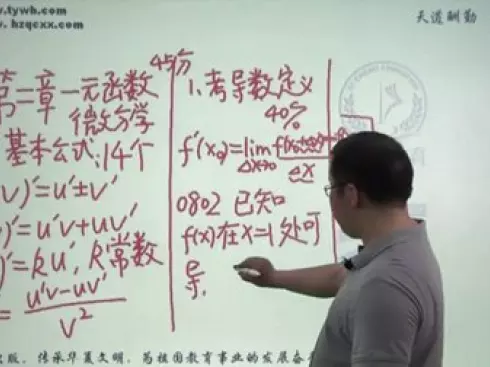 www.tywh.com
www.hzqcxx.com
天道酬勤
第二章 一元函数 45分
微分学
基本公式:14个
v)'=u'±v'
)'=u'v+uv'
)'=ku', k常数
= u'v-uv' / v²
1.考导数定义
40%
f'(x₀)=lim
Δx→0
Δx
0802 已知
f(x)在x=1处可
导.
出版，传承华夏文明，为祖国教育事业的发展奋